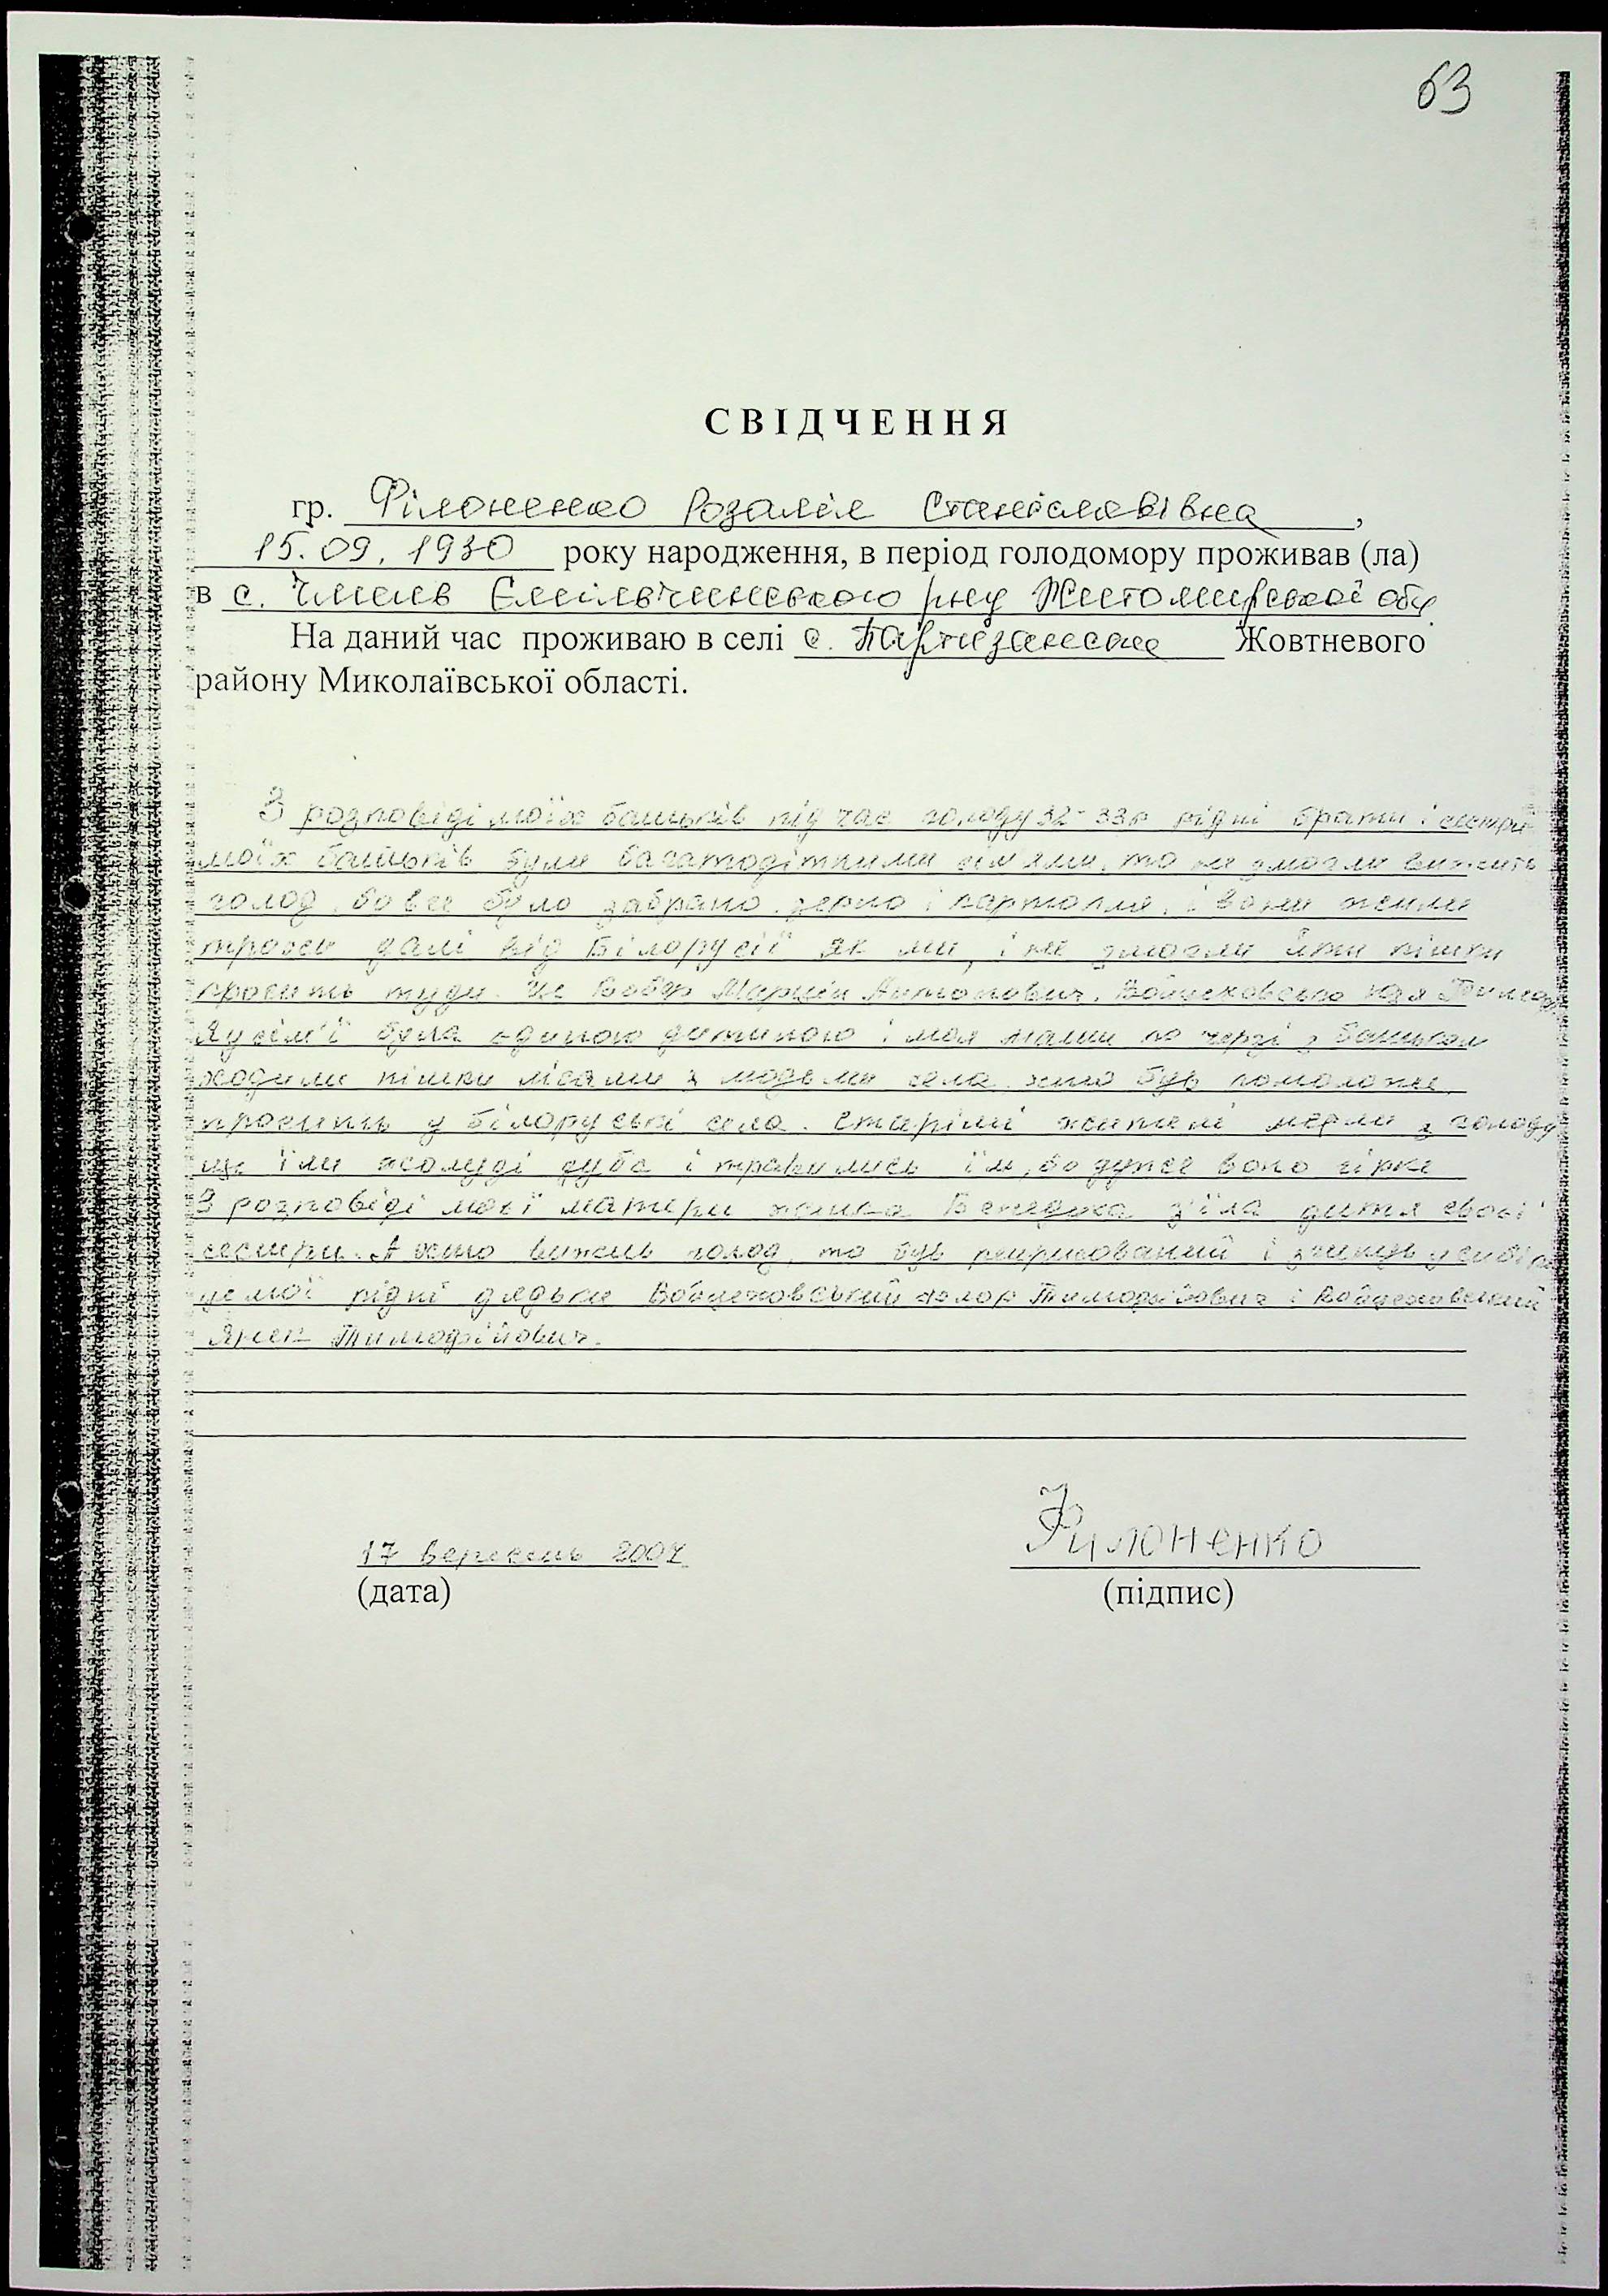 63
СВІДЧЕННЯ
гр. Філоненко Розалія Станіславівна,
15.09.1930 року народження, в період голодомору проживав (ла)
в с. Ємільчинського р-ну Житомирської обл.
На даний час проживаю в селі с. Партизанське Жовтневого
району Миколаївської області.
З розповіді моїх батьків під час голоду 32-33р рідні брати і сестри
моїх батьків були багатодітними сім'ями, то не змогли вижить
голод, бо все було забрано, зерно і картопля, і вони жили
трохи далі від Білорусії як ми, і не змогли йти пішки
просить туди. Це Бобер Марцін Антонович, Войцеховська Юзя
Я у сім'ї була одиною дитиною і моя мати по черзі з батьком
ходили пішки лісами з людьми села, хто був помоложе,
просить у білоруські села. Старіші жителі мерли з голоду
ще їли жолуді дуба і травились їм, бо дуже воно гірке
З розповіді моєї матери жінка з'їла дитя своєї
сестри. А хто вижив голод, то був реприсований і зчинув у сибірі
це мої рідні дядьки Войцеховський Тимофійович і Войцеховський
Янек Тимофійович.
17 вересень 2007
Филоненко
(дата) (підпис)